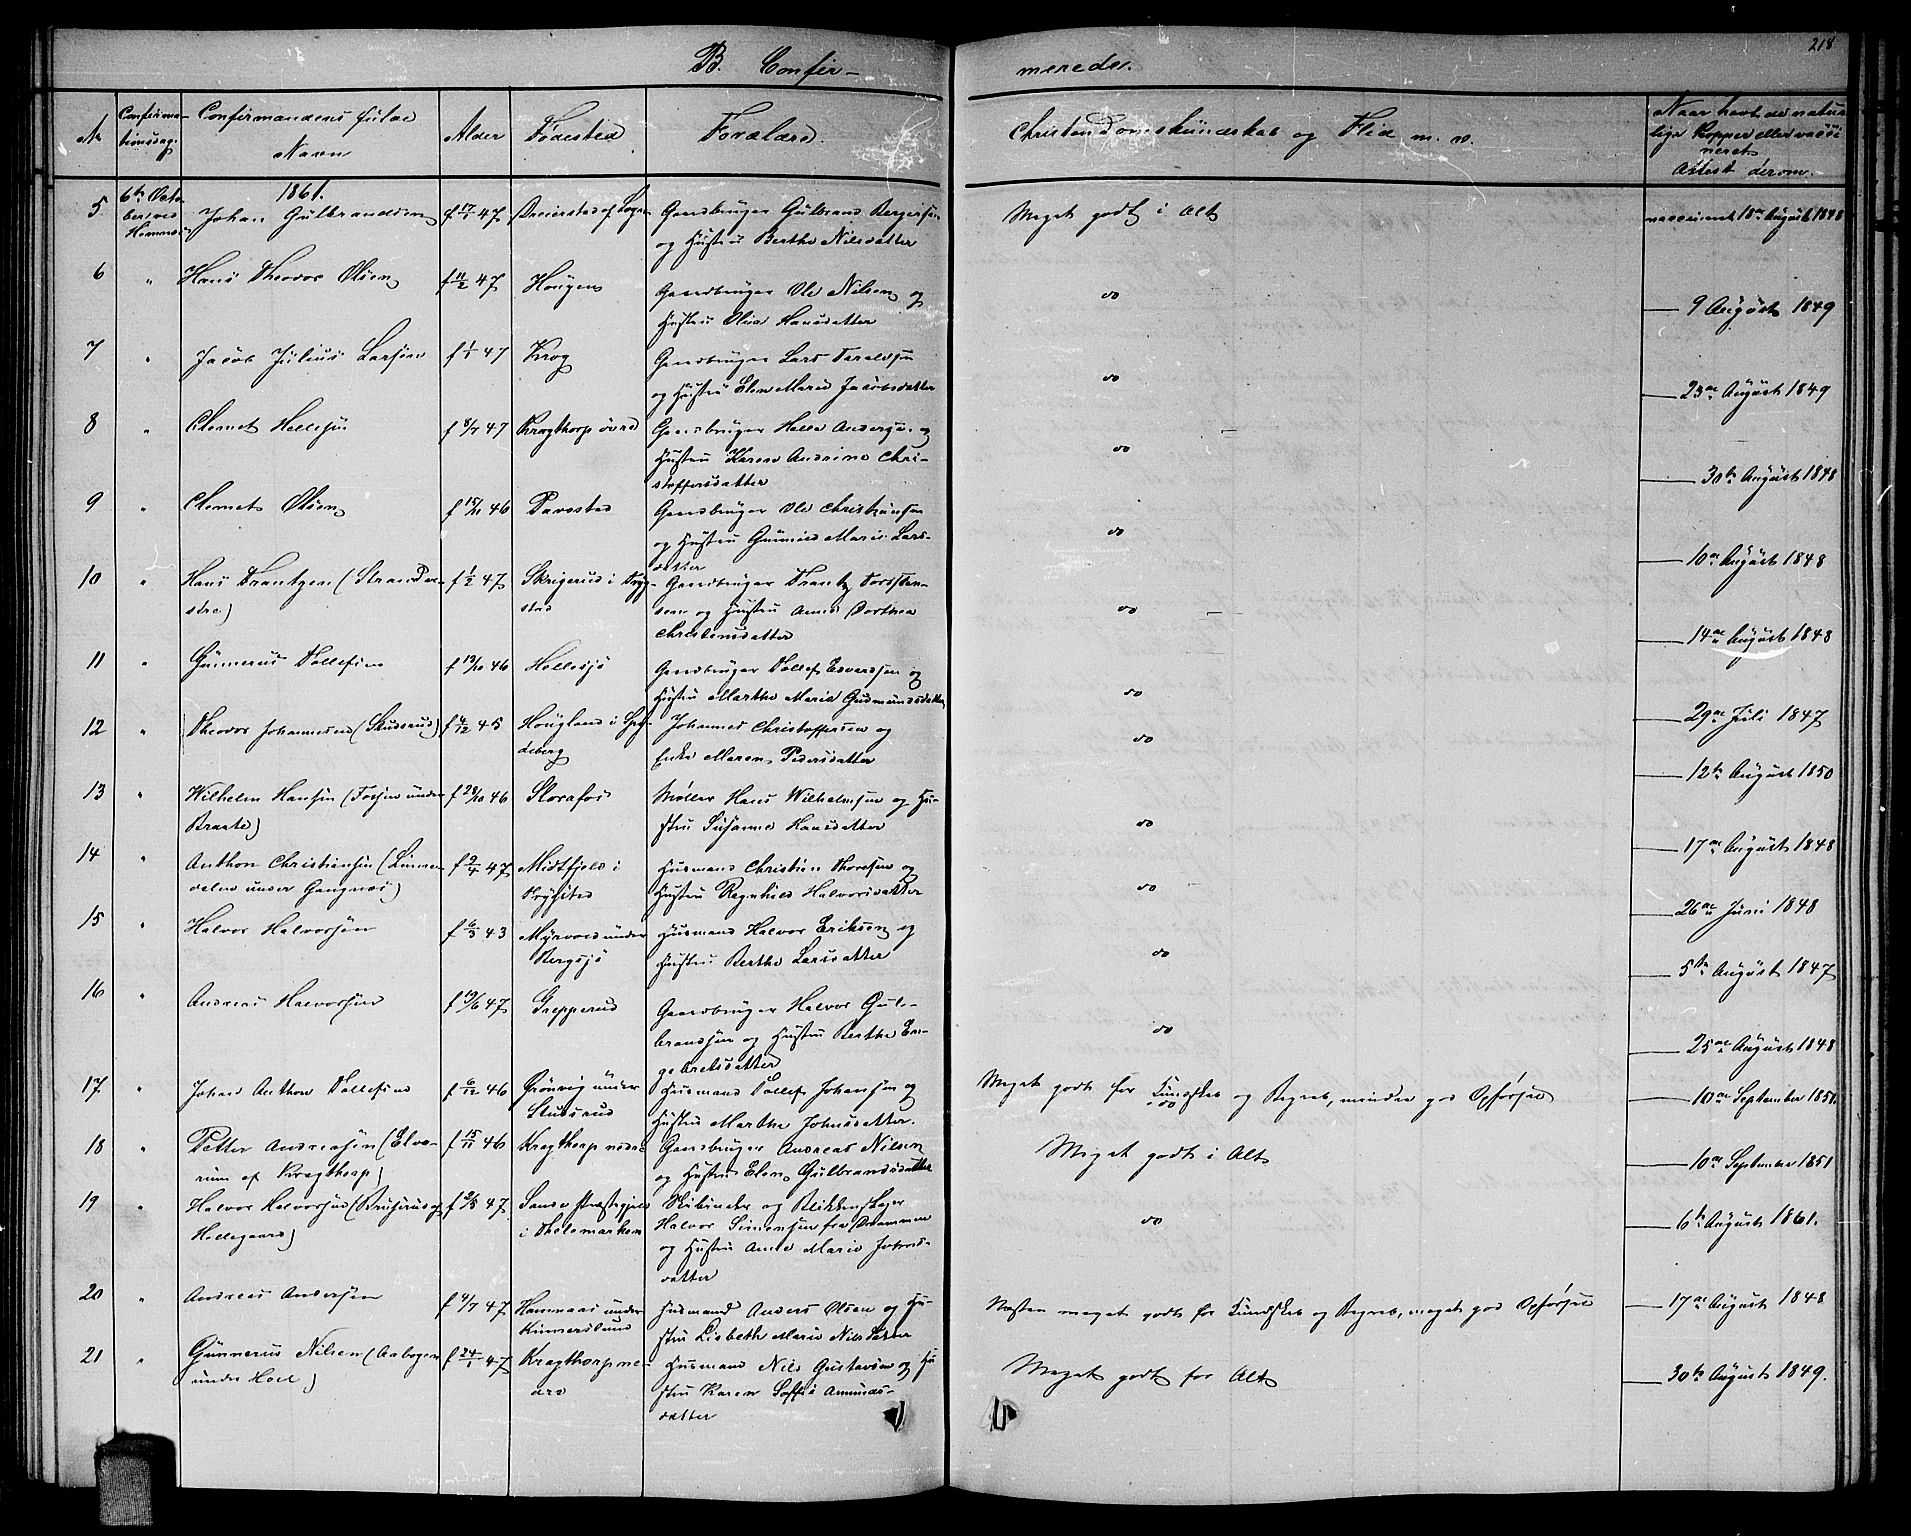 218
B. Confirmerede.
No
Confirmationsdag.
Confirmandens fulde Navn
Alder
Fødested
Forældre.
Christendomskundskab og Flid m. v.
Naar havt de naturlige Kopper eller vaccineret Attest derom.
1861.
5 6te Octobers ved Hemnæs Johan Gulbrandsen f 17/1 47 Gaardbruger Gulbrand Bergersen og Hustru Berthe Nilsdatter Meget godt i Alt vaccineret 18de August 1848
6 " Hans Theodor Olsen f 11/2 47 Hougen Gaardbruger Ole Nilsen og Hustru Olia Hansdatter do 9 August 1849
7 " Jacob Julius Larsen f 1/1 47 Krog Gaardbruger Lars Taraldsen og Hustru Elen Marie Jacobsdatter do 23de August 1849
8 " Clemet Hellesen f 8/7 47 Kragthorp övre Gaardbruger Helle Andersen og Hustru Karen Andrine Christoffersdatter do 30te August 1848
9 " Clemet Olsen f 15/11 46 Gaardbruger Ole Christiansen og Hustru Marie Larsdatter do 10de August 1848
10 " Hans Frantzen (Strand vestre) f 1/2 47 Skrigerud i Trygstad Gaardbruger Frantz Torstensen og Hustru Anne Dorthea Christensdatter do 14de August 1848
11 " Gunnerus Tollefsen f 19/10 46 Hellesjö Gaardbruger Tollef Evensen og Hustru Marthe Marie Gudmundsdatter do 29de Juli 1847
12 " Theodor Johannesen (Skusrud) f 4/12 45 Hougland i Spydeberg Johannes Christoffersen og Enke Maren Pedersdatter do 12te August 1850
13 " Wilhelm Hansen (Fossen under Braate) f 28/10 46 Storafos Møller Hans Wilhelmsen og Hustru Susanne Hansdatter do 17de August 1848
14 " Anthon Christiansen (Linnerdalen under Gangnæs) f 9/4 47 Midtfjeld i Trygstad Husmand Christian Thoresen og Hustru Regnhild Halvorsdatter do 26de Juni 1848
15 " Halvor Halvorsen f 6/3 43 Myrvold under Bergsjö Husmand Halvor Eriksen og Hustru Berthe Larsdatter do 5te August 1847
16 " Andreas Halvorsen f 19/6 47 Grepperud Gaardbruger Halvor Gulbrandsen og Hustru Berthe Engebretsdatter do 25de August 1848
17 " Johan Anthon Tollefsen f 6/12 46 Grönvig under Skusrud Husmand Tollef Johansen og Hustru Marthe Johnsdatter. Meget godt for Kundskab og Begreb, mindre god Opförsel 10de September 1851.
18 " Petter Andreasen (Elverum af Kragthorp) f 15/11 46 Kragthorp nedre Gaardbruger Andreas Nilsen og Hustru Elen Gulbrandsdatter Meget godt i Alt 10de September 1851
19 " Halvor Halvorsen (Bruserud af Hellegaard) f 2/5 47 Sande Præstegjeld i Thelemarken Skibinder og Blikkenslager Halvor Simensen fra Drammen og Hustru Anne Marie Johnsdatter do 6te August 1861.
20 " Andreas Andersen f 4/7 47 Hammaas under Kinnerslund Husmand Anders Olsen og Hustru Lisbeth Marie Nilsdatter Næsten meget godt for Kundskab og Begreb, meget god Opførsel 17de August 1848
21 " Gunnerus Nilsen (Aabogen under Hoel) f 24/1 47 Kragthorp nedre Husmand Nils Gustavsen og Hustru Karen Soffie Amundsdatter Meget godt for Alt 30te August 1849.